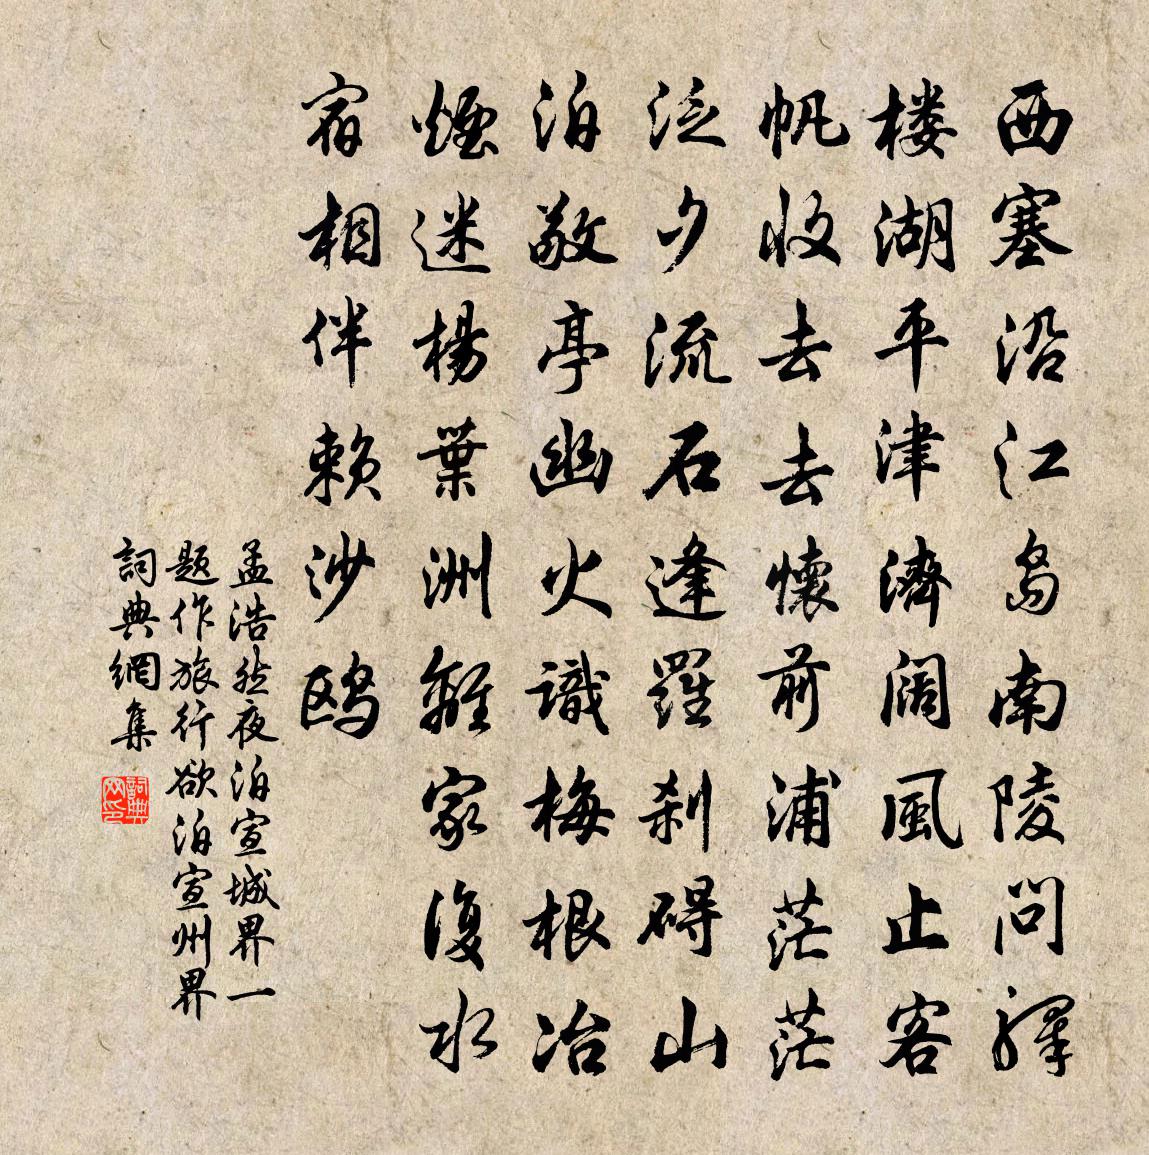 西塞沿江岛南陵问驛
楼湖平津濟阔風止客
帆收去去懷前浦茫茫
泛夕流石逢羅刹碍山
泊敬亭幽火識梅根冶
煙迷楊葉洲離家復水
宿相伴赖沙鸥
孟浩然夜泊宣城界一
题作旅行欲泊宣州界
詞典網集
詞典网印